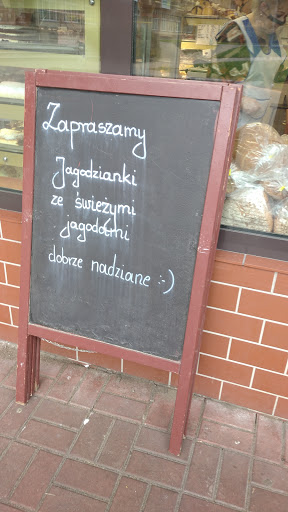 Zapraszamy
Jagodzianki
ze świeżymi
jagodami
dobrze nadziane :-)